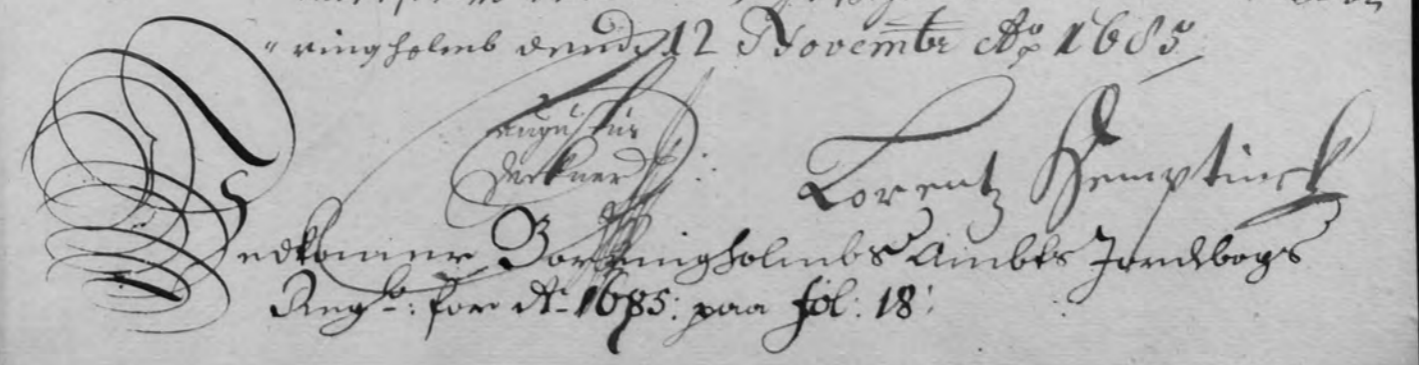 ringholmb dend 12 Novembr Ao 1685
Augustus
Deckner
Lorentz Hemptinck
Vedkommer Borringholmbs Ambts Jordebogs
Regb: for Ao 1685: paa fol: 18: